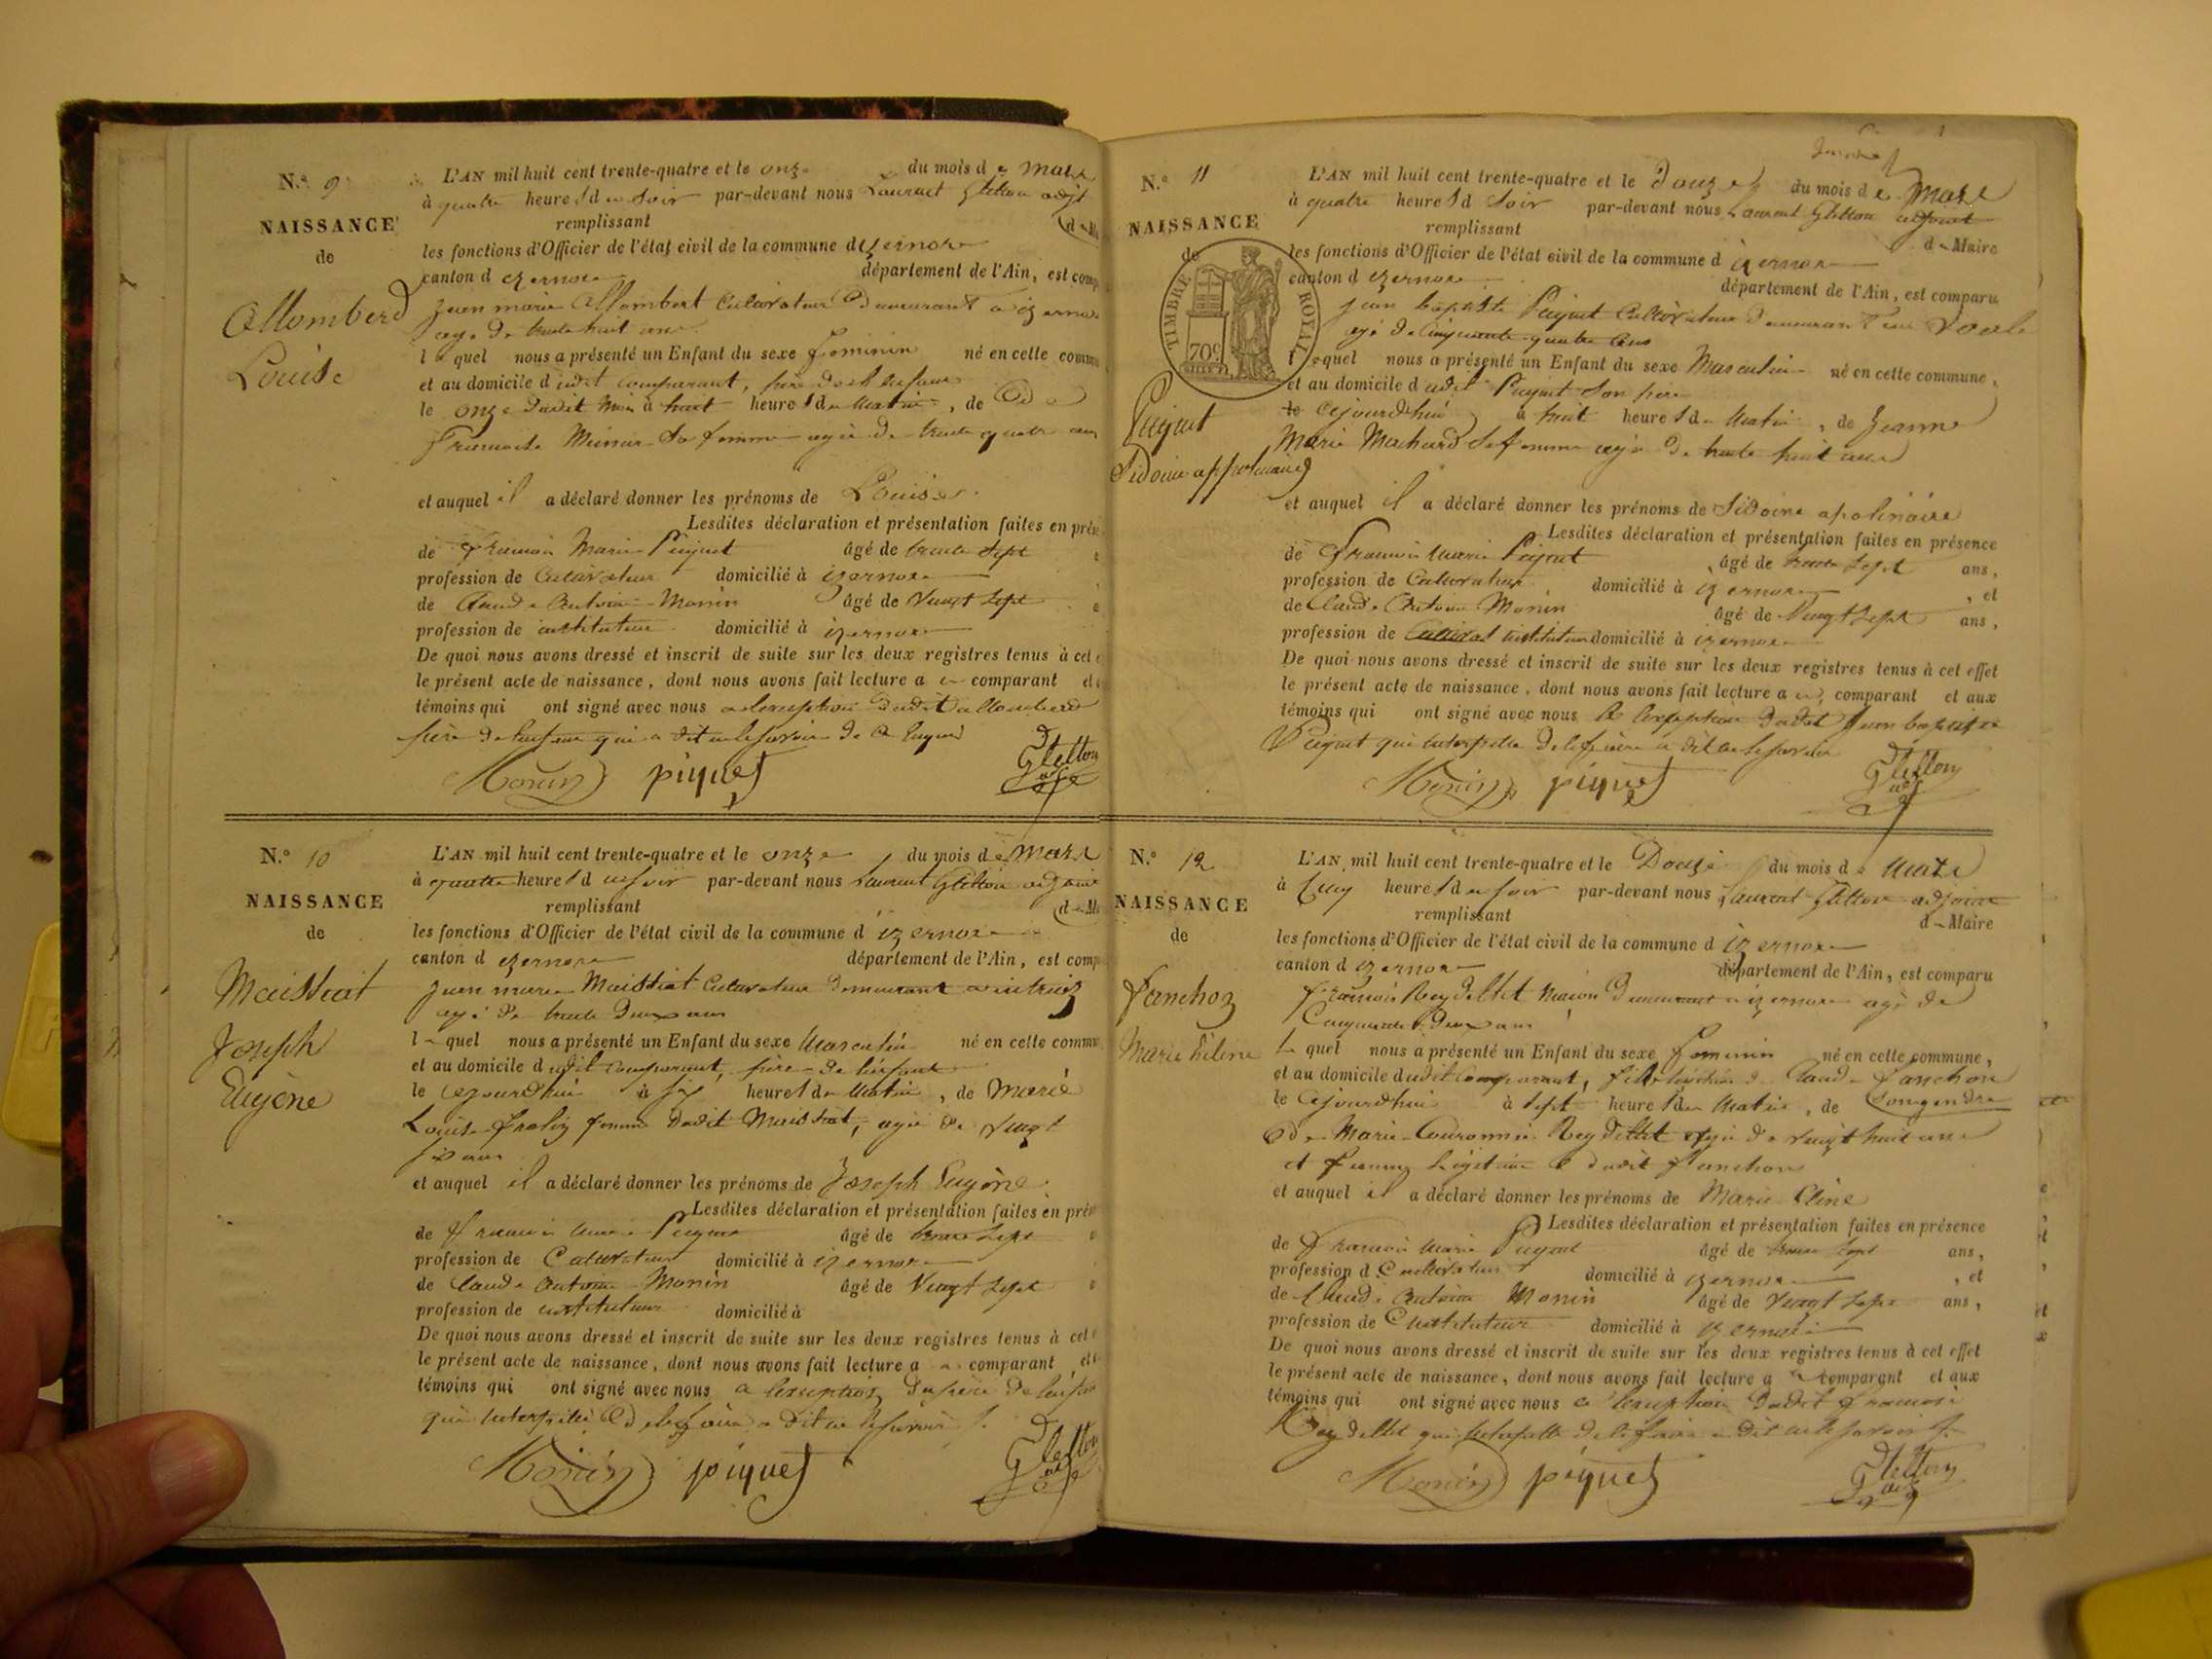 N.° 9
NAISSANCE
de
Allomberd
Louise
L'AN mil huit cent trente-quatre et le onze du mois de Mars
à quatre heures du soir par-devant nous Laurent Gletton adjt
remplissant
les fonctions d'Officier de l'état civil de la commune d'izernore
canton d izernore département de l'Ain, est comp
Jean marie Allombert Cultivateur Demeurant a izernore
age de trente huit ans
le quel nous a présenté un Enfant du sexe feminin né en cette commu
et au domicile dudit comparant, père dudit enfant
le onze dudit mois à huit heures du Matin, de
Francoise sa femme agée de trente quatre ans
et auquel il a déclaré donner les prénoms de Louise
Lesdites déclaration et présentation faites en prés
de François Marie Piquet âgé de trente sept
profession de Cultivateur domicilié à izernore
de Claude Antoine Monin âgé de Vingt sept
profession de instituteur domicilié à izernore
De quoi nous avons dressé et inscrit de suite sur les deux registres tenus à cet e
le présent acte de naissance, dont nous avons fait lecture au comparant et
témoins qui ont signé avec nous a l'exception dudit allombert
père de l'enfant qui a dit ne le savoir de ce requis
Monin piquet Gletton adj
N.° 10
NAISSANCE
de
Maissiat
Joseph
Eugène
L'AN mil huit cent trente-quatre et le onze du mois de Mars
à quatre heures du soir par-devant nous Laurent Gletton adjoint
remplissant
les fonctions d'Officier de l'état civil de la commune d izernore
canton d izernore département de l'Ain, est comp
Jean marie Maissiat Cultivateur Demeurant a
agé de trente Deux ans
le quel nous a présenté un Enfant du sexe Masculin né en cette commu
et au domicile dudit comparant, père de l'enfant
le cejourdhui à six heures du Matin, de Marie
Louise femme dudit Maissiat, agée de vingt
six ans
et auquel il a déclaré donner les prénoms de Joseph Eugène
Lesdites déclaration et présentation faites en prés
de François Marie Piquet âgé de trente sept
profession de Cultivateur domicilié à izernore
de Claude Antoine Monin âgé de Vingt sept
profession de instituteur domicilié à
De quoi nous avons dressé et inscrit de suite sur les deux registres tenus à cet
le présent acte de naissance, dont nous avons fait lecture au comparant et
témoins qui ont signé avec nous a l'exception du père de l'enfant
qui interpellé de le faire a dit ne le savoir
Monin piquet Gletton adj
N.° 11
NAISSANCE
de
TIMBRE ROYAL
70c
Piquet
Sidoine appolinaire
L'AN mil huit cent trente-quatre et le Douze du mois de Mars
à quatre heures d soir par-devant nous Laurent Gletton adjoint
remplissant du Maire
les fonctions d'Officier de l'état civil de la commune d izernore
canton d izernore département de l'Ain, est comparu
Jean baptiste Piquet Cultivateur demeurant
agé de Cinquante quatre ans
lequel nous a présenté un Enfant du sexe Masculin né en cette commune,
et au domicile dudit Piquet Son père
le cejourdhui à huit heures du Matin, de Jeanne
Marie Machard Sa femme agée de trente huit ans
et auquel il a déclaré donner les prénoms de Sidoine apolinaire
Lesdites déclaration et présentation faites en présence
de François Marie Piquet âgé de trente sept ans,
profession de Cultivateur domicilié à izernore, et
de Claude Antoine Monin âgé de Vingt sept ans,
profession de instituteur domicilié à izernore
De quoi nous avons dressé et inscrit de suite sur les deux registres tenus à cet effet
le présent acte de naissance, dont nous avons fait lecture au comparant et aux
témoins qui ont signé avec nous a l'exception dudit Jean baptiste
Piquet qui interpellé de le faire a dit ne le savoir
Monin piquet Gletton adj
N.° 12
NAISSANCE
de
fanchon
Marie hélene
L'AN mil huit cent trente-quatre et le Douze du mois de Mars
à Cinq heures du soir par-devant nous Laurent Gletton adjoint
remplissant du Maire
les fonctions d'Officier de l'état civil de la commune d izernore
canton d izernore département de l'Ain, est comparu
François Reydellet Maçon demeurant a izernore agé de
Cinquante Deux ans
le quel nous a présenté un Enfant du sexe feminin né en cette commune,
et au domicile dudit comparant, fille légitime de Claude fanchon
le cejourdhui à sept heures du Matin, de Son gendre
et de Marie Reydellet agée de vingt huit ans
et femme légitime dudit fanchon
et auquel il a déclaré donner les prénoms de Marie Eléne
Lesdites déclaration et présentation faites en présence
de François Marie Piquet âgé de trente sept ans,
profession d Cultivateur domicilié à izernore, et
de Claude Antoine Monin âgé de Vingt sept ans,
profession de instituteur domicilié à izernore
De quoi nous avons dressé et inscrit de suite sur les deux registres tenus à cet effet
le présent acte de naissance, dont nous avons fait lecture au comparant et aux
témoins qui ont signé avec nous a l'exception dudit François
Reydellet qui interpellé de le faire a dit ne le savoir
Monin piquet Gletton adj